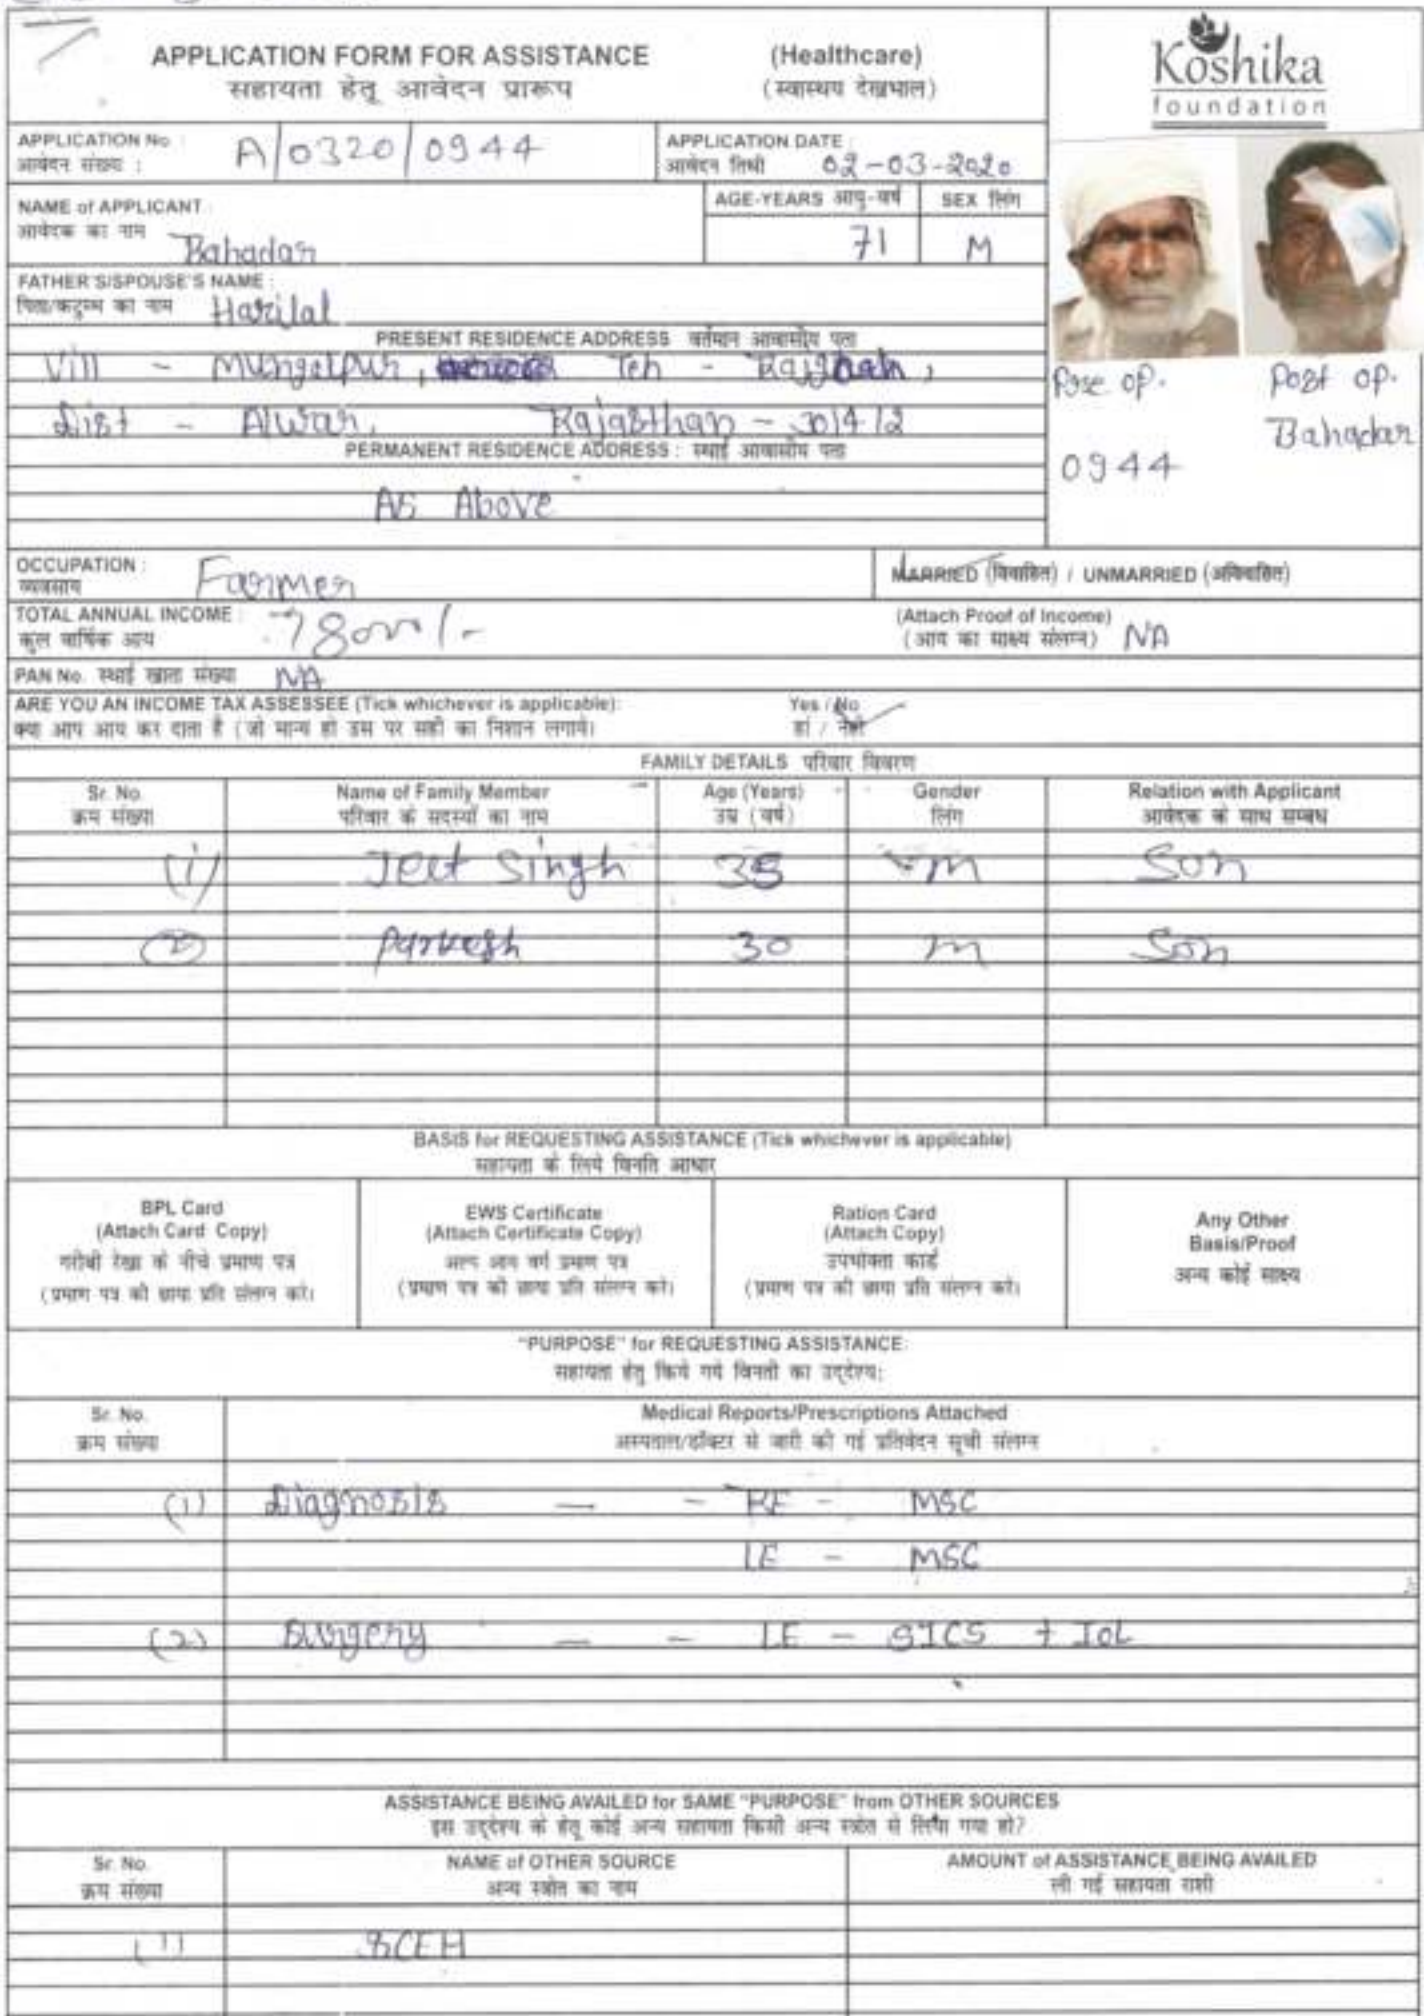 APPLICATION FORM FOR ASSISTANCE (Healthcare)
सहायता हेतू आवेदन प्रारूप (स्वास्थय देखभाल)
Koshika
foundation
APPLICATION No :
आवेदन संख्या : A/0320/0944
APPLICATION DATE :
आवेदन तिथी 02-03-2020
NAME of APPLICANT :
आवेदक का नाम Bahadar
AGE-YEARS आयु-वर्ष 71
SEX लिंग M
FATHER'S/SPOUSE'S NAME :
पिता/कटुम्ब का नाम Harilal
PRESENT RESIDENCE ADDRESS वर्तमान आवासीय पता
Vill - Mungalpur, Teh - Rajgarh,
Dist - Alwar, Rajasthan - 301412
PERMANENT RESIDENCE ADDRESS : स्थाई आवासीय पता
As Above
Pre op. Post op.
Bahadar
0944
OCCUPATION :
व्यवसाय Farmer
MARRIED (विवाहित) / UNMARRIED (अविवाहित)
TOTAL ANNUAL INCOME :
कुल वार्षिक आय 78000/-
(Attach Proof of Income)
(आय का साक्ष्य संलग्न) NA
PAN No. स्थाई खाता संख्या NA
ARE YOU AN INCOME TAX ASSESSEE (Tick whichever is applicable): Yes / No
क्या आप आय कर दाता है (जो मान्य हो उस पर सही का निशान लगाये। हां / नही
FAMILY DETAILS परिवार विवरण
Sr. No. Name of Family Member Age (Years) Gender Relation with Applicant
क्रम संख्या परिवार के सदस्यों का नाम उम्र (वर्ष) लिंग आवेदक के साथ सम्बध
(1) Jeet Singh 35 M Son
(2) Parkesh 30 M Son
BASIS for REQUESTING ASSISTANCE (Tick whichever is applicable)
सहायता के लिये विनति आधार
BPL Card
(Attach Card Copy)
गरीबी रेखा के नीचे प्रमाण पत्र
(प्रमाण पत्र की छाया प्रति संलग्न करे।
EWS Certificate
(Attach Certificate Copy)
अल्प आय वर्ग प्रमाण पत्र
(प्रमाण पत्र की छाया प्रति संलग्न करे।
Ration Card
(Attach Copy)
उपभोक्ता कार्ड
(प्रमाण पत्र की छाया प्रति संलग्न करे।
Any Other
Basis/Proof
अन्य कोई साक्ष्य
"PURPOSE" for REQUESTING ASSISTANCE:
सहायता हेतु किये गये विनती का उद्देश्य:
Sr. No. Medical Reports/Prescriptions Attached
क्रम संख्या अस्पताल/डॉक्टर से जारी की गई प्रतिवेदन सूची संलग्न
(1) Diagnosis - - RE - MSC
LE - MSC
(2) Surgery - - LE - SICS + IOL
ASSISTANCE BEING AVAILED for SAME "PURPOSE" from OTHER SOURCES
इस उद्देश्य के हेतू कोई अन्य सहायता किसी अन्य स्त्रोत से लिया गया हो?
Sr. No. NAME of OTHER SOURCE AMOUNT of ASSISTANCE BEING AVAILED
क्रम संख्या अन्य स्त्रोत का नाम ली गई सहायता राशी
(1) SCEH